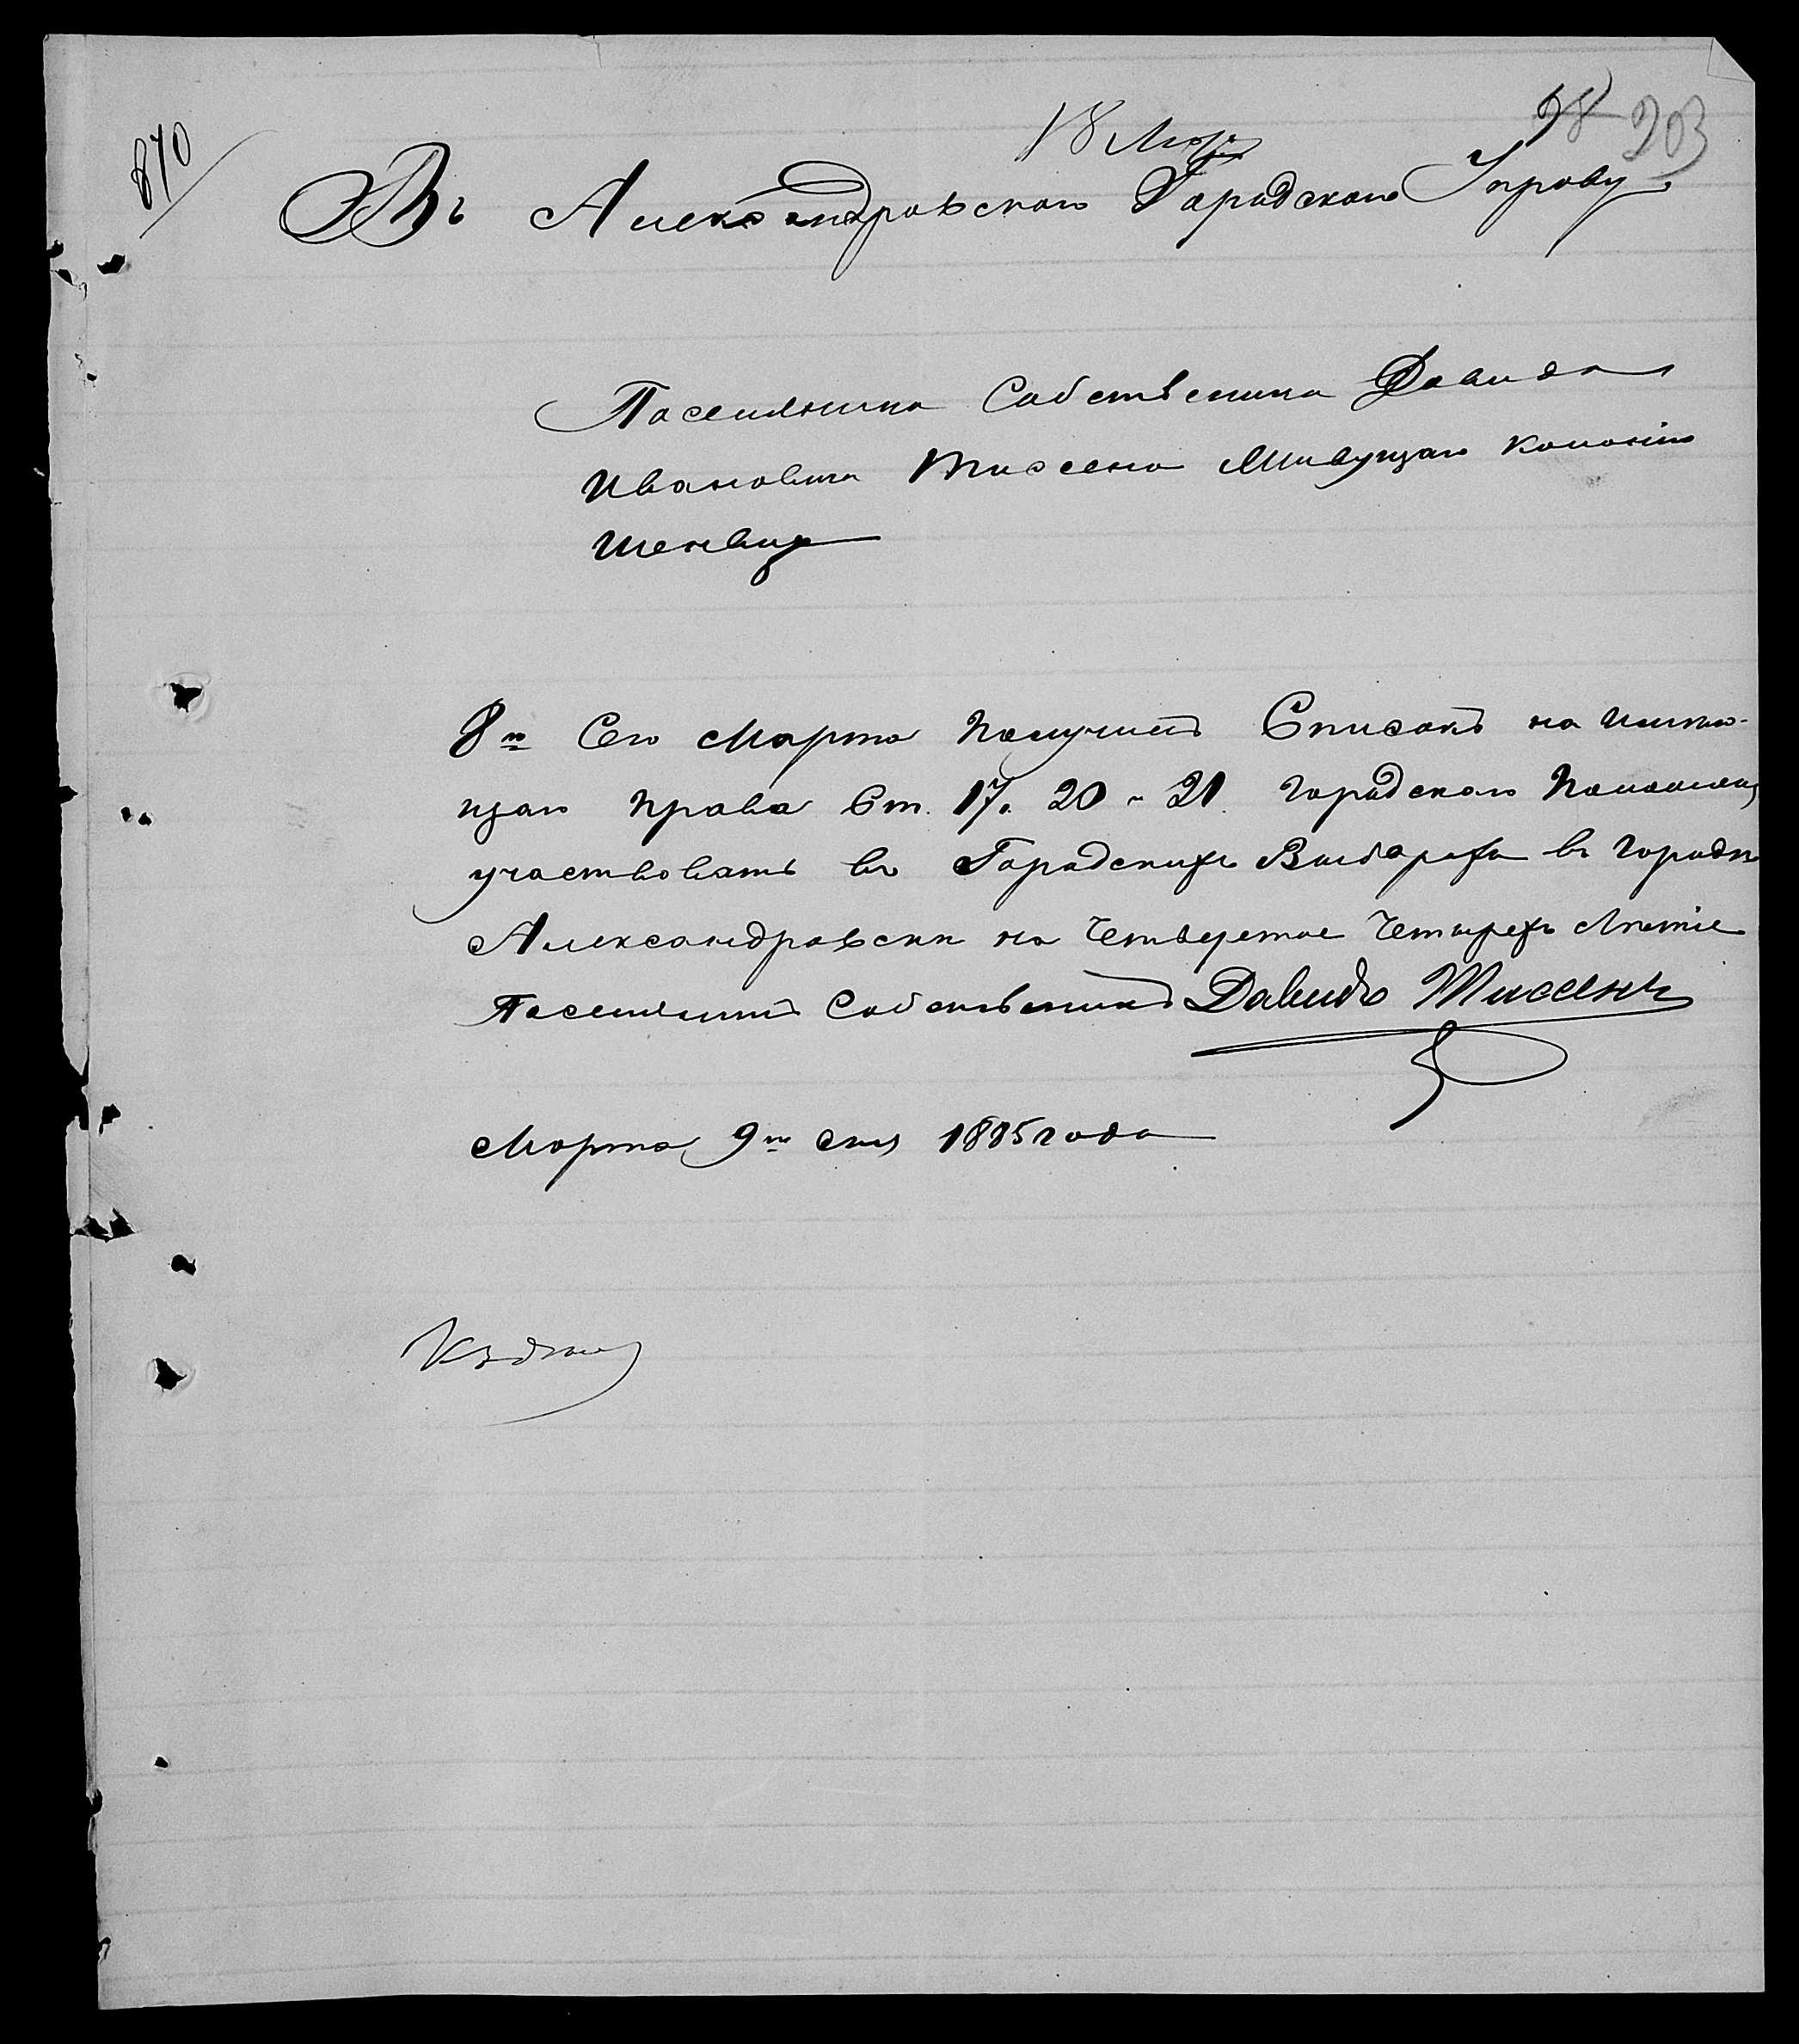 870
18 Мар.
98 203
Въ Александровскою Городскою Управу
Поселянина Собственика Давида
Ивановича Тиссена Живущаго Колонію
Шенвизе
8го Сего Марта Получилъ Списокъ на Имею-
щаго права Ст. 17. 20 и 21. Городскаго Положения
участвовать въ Городскихъ Выборахъ въ городѣ
Александровскѣ на Четвертое Четырехъ Лѣтіе
Поселянинъ Собственикъ Давидъ Тиссенъ
Марта 9го дня 1885 года
Къ дѣлу